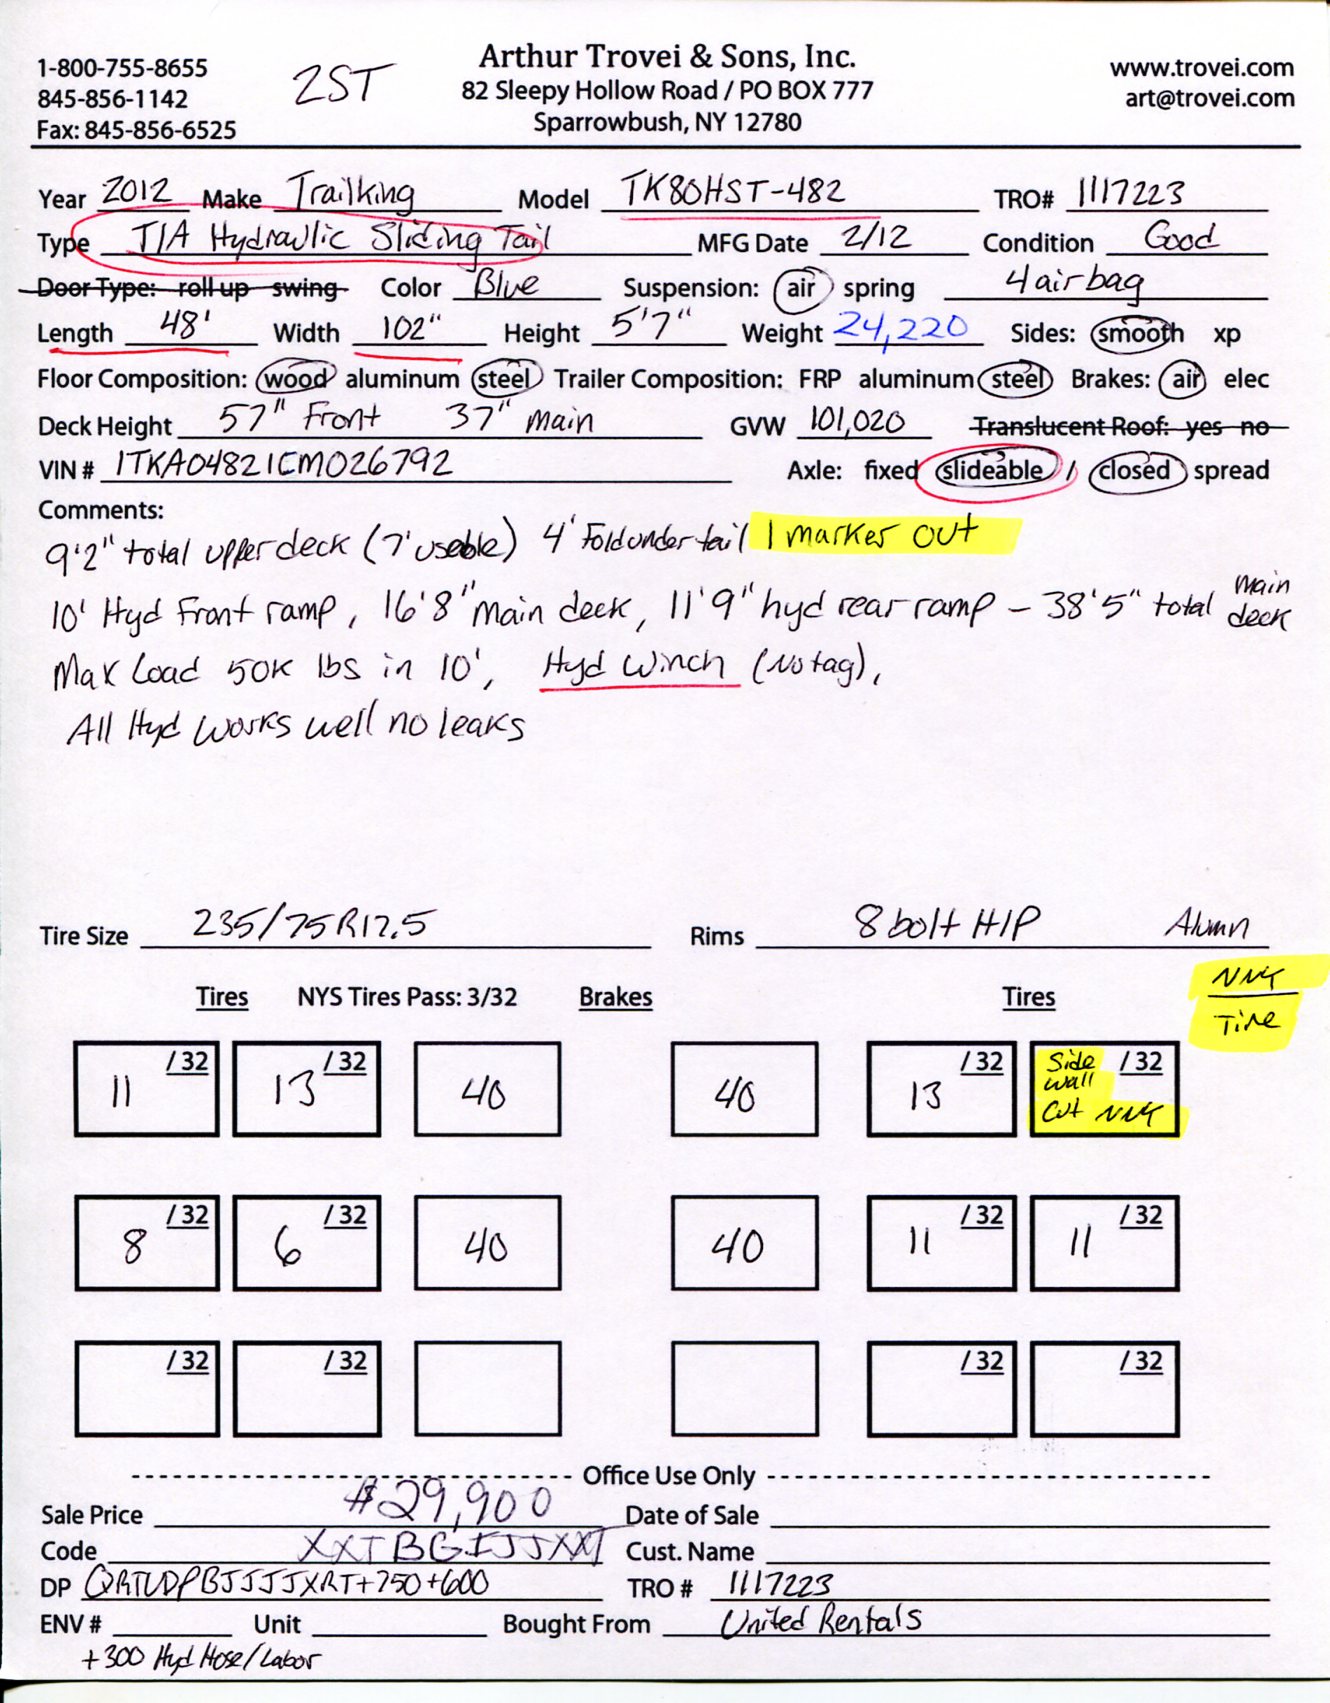 1-800-755-8655
845-856-1142
Fax: 845-856-6525
2ST
Arthur Trovei & Sons, Inc.
82 Sleepy Hollow Road / PO BOX 777
Sparrowbush, NY 12780
www.trovei.com
art@trovei.com
Year 2012 Make Trailking Model TK80HST-482 TRO# 1117223
Type T/A Hydraulic Sliding Tail MFG Date 2/12 Condition Good
Door Type: roll up swing Color Blue Suspension: air spring 4 air bag
Length 48' Width 102" Height 5'7" Weight 24,220 Sides: smooth xp
Floor Composition: wood aluminum steel Trailer Composition: FRP aluminum steel Brakes: air elec
Deck Height 57" Front 37" Main GVW 101,020 Translucent Roof: yes no
VIN # 1TKA04821CM026792 Axle: fixed slideable / closed spread
Comments:
9'2" total upper deck (7' useable) 4' Foldunder tail 1 marker out
10' Hyd Front ramp, 16'8" Main deck, 11'9" hyd rear ramp - 38'5" total main deck
Max Load 50K lbs in 10', Hyd Winch (No tag),
All Hyd works well no leaks
Tire Size 235/75R17.5 Rims 8 bolt H/P Alumn
Tires NYS Tires Pass: 3/32 Brakes Tires
NNY
Tire
11 /32 13 /32 40 40 13 /32 Side wall Cut NNY /32
8 /32 6 /32 40 40 11 /32 11 /32
/32 /32 /32 /32
Office Use Only
Sale Price $29,900 Date of Sale
Code Cust. Name
DP TRO # 1117223
ENV # Unit Bought From United Rentals
+300 Hyd Hose/Labor